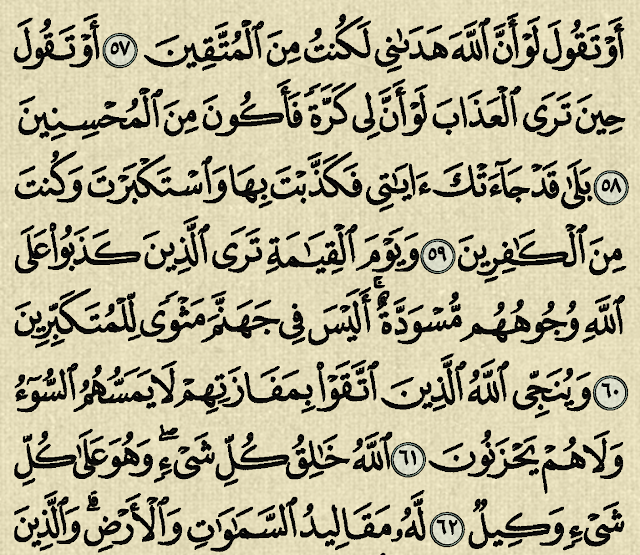 أَوْ تَقُولَ لَوْ أَنَّ ٱللَّهَ هَدَىٰنِى لَكُنتُ مِنَ ٱلْمُتَّقِينَ ٥٧ أَوْ تَقُولَ
حِينَ تَرَى ٱلْعَذَابَ لَوْ أَنَّ لِى كَرَّةً فَأَكُونَ مِنَ ٱلْمُحْسِنِينَ
٥٨ بَلَىٰ قَدْ جَآءَتْكَ ءَايَٰتِى فَكَذَّبْتَ بِهَا وَٱسْتَكْبَرْتَ وَكُنتَ
مِنَ ٱلْكَٰفِرِينَ ٥٩ وَيَوْمَ ٱلْقِيَٰمَةِ تَرَى ٱلَّذِينَ كَذَبُوا۟ عَلَى
ٱللَّهِ وُجُوهُهُم مُّسْوَدَّةٌ ۚ أَلَيْسَ فِى جَهَنَّمَ مَثْوًى لِّلْمُتَكَبِّرِينَ
٦٠ وَيُنَجِّى ٱللَّهُ ٱلَّذِينَ ٱتَّقَوْا۟ بِمَفَازَتِهِمْ لَا يَمَسُّهُمُ ٱلسُّوٓءُ
وَلَا هُمْ يَحْزَنُونَ ٦١ ٱللَّهُ خَٰلِقُ كُلِّ شَىْءٍ ۖ وَهُوَ عَلَىٰ كُلِّ
شَىْءٍ وَكِيلٌ ٦٢ لَّهُۥ مَقَالِيدُ ٱلسَّمَٰوَٰتِ وَٱلْأَرْضِ ۗ وَٱلَّذِينَ